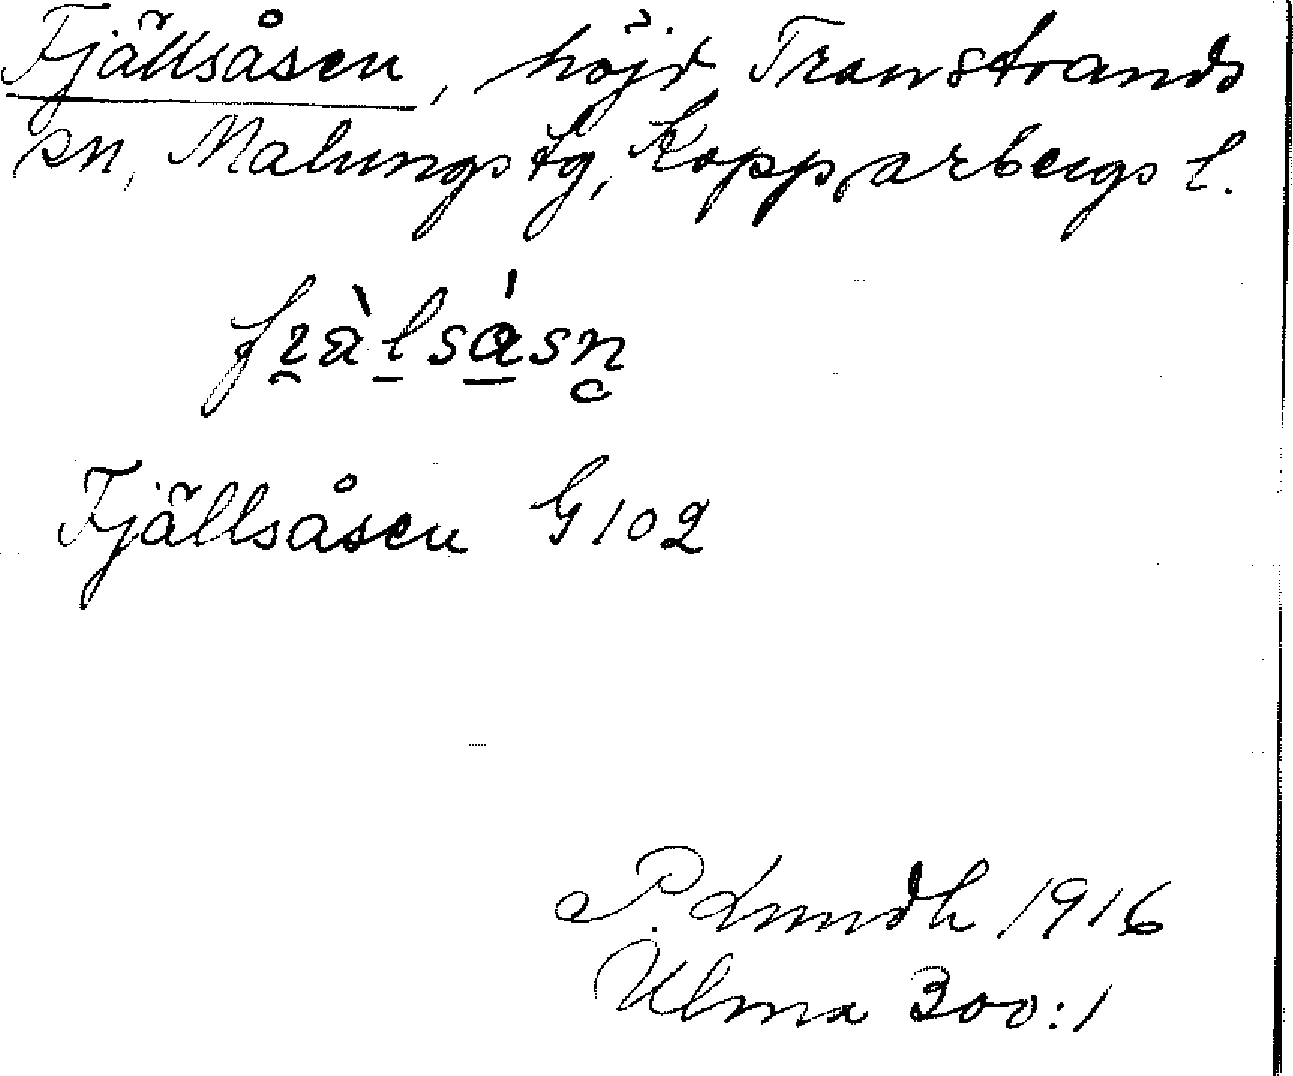 Fjällsåsen, höjd, Transtrands
sn, Malungs tg, Kopparbergs l.
Fjällsåsen G 102
P. Lundh 1916
Ulma 300:1